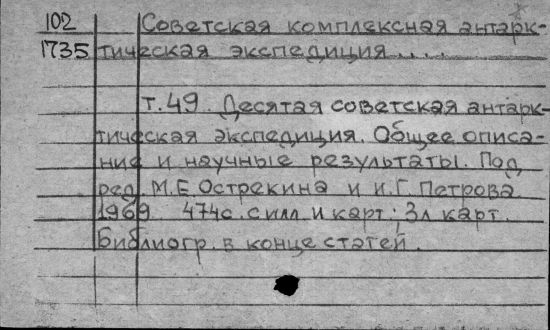 102 Советская комплексная антарк-
1735 тическая экспедиция....
т.49. Десятая советская антарк-
тическая экспедиция. Общее описа-
ние и научные результаты. Под
ред. М.Е. Острекина и И.Г. Петрова
1969 474с. с илл. и карт; 3л карт.
Библиогр. в конце статей.